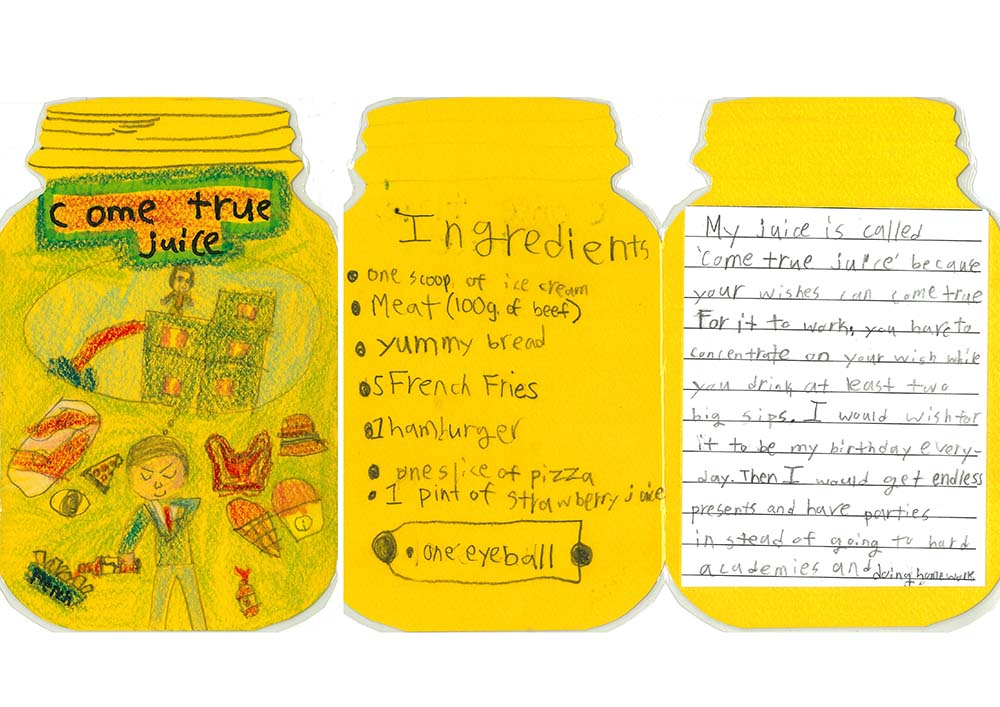 Come true
juice
Ingredients
• one scoop of ice cream
• Meat (100g. of beef)
• yummy bread
• 5 French Fries
• 1 hamburger
• one slice of pizza
• 1 pint of strawberry juice
• one eyeball
My juice is called
'Come true juice' because
your wishes can come true
For it to work, you have to
concentrate on your wish while
you drink at least two
big sips. I would wish for
it to be my birthday every-
day. Then I would get endless
presents and have parties
in stead of going to hard
academies and doing homework